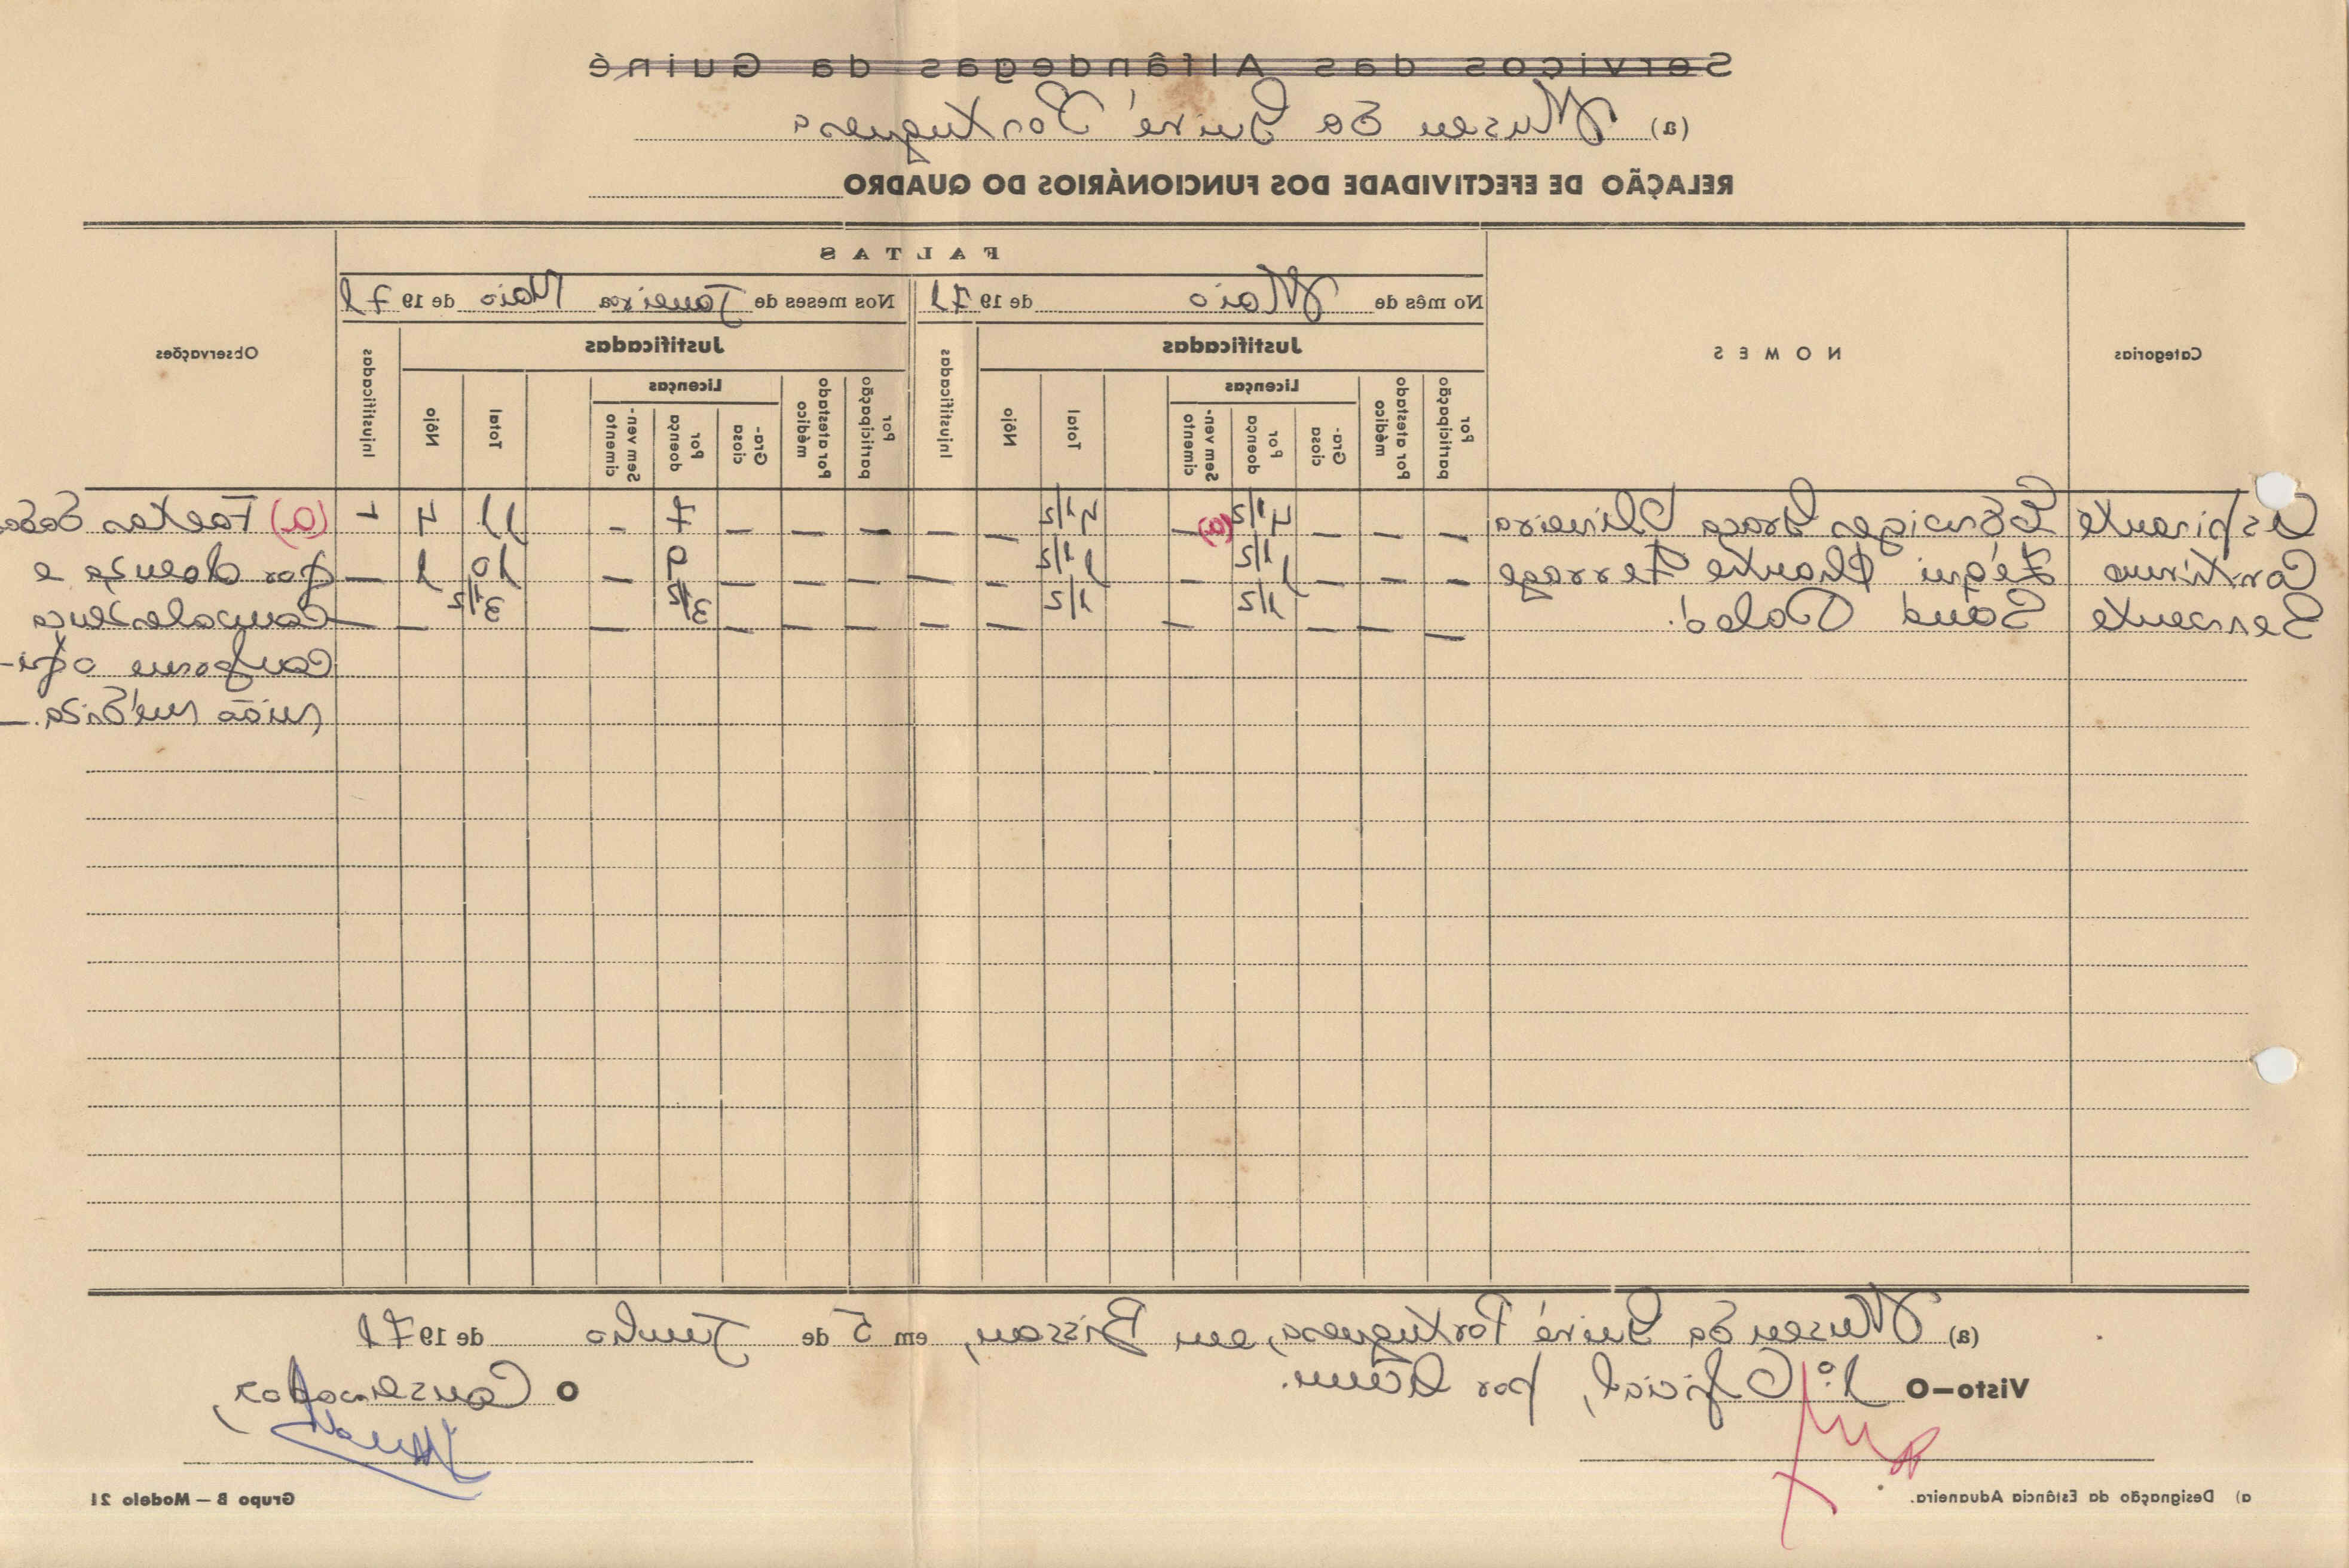 Serviços das Alfândegas da Guiné
(a) Museu da Guiné Portuguesa
RELAÇÃO DE EFECTIVIDADE DOS FUNCIONÁRIOS DO QUADRO
FALTAS
No mês de Maio de 1971 Nos meses de Janeiro a Maio de 1971
Categorias NOMES Justificadas Injustificadas Justificadas Injustificadas Observações
Por participação Por atestado médico Licenças Total Nôjo Por participação Por atestado médico Licenças Total Nôjo
Graciosa Por doença Sem vencimento Graciosa Por doença Sem vencimento
Aspirante Graça Oliveira — — — 4 1/2 (a) — 4 1/2 — — — — — 7 — 11 4 - (a) Faltas dadas
Contínuo — — — 1 1/2 — 1 1/2 — — — — — 9 — 10 1 — por doença e
Servente — — — 1/2 — 1/2 — — — — — 3 1/2 — 3 1/2 — — convalescença
conforme opi-
nião médica. —
(a) Museu da Guiné Portuguesa, em Bissau, em 5 de Junho de 1971
Visto—O 1.º Oficial, por acum. O Conservador,
a) Designação da Estância Aduaneira. Grupo B — Modelo 21